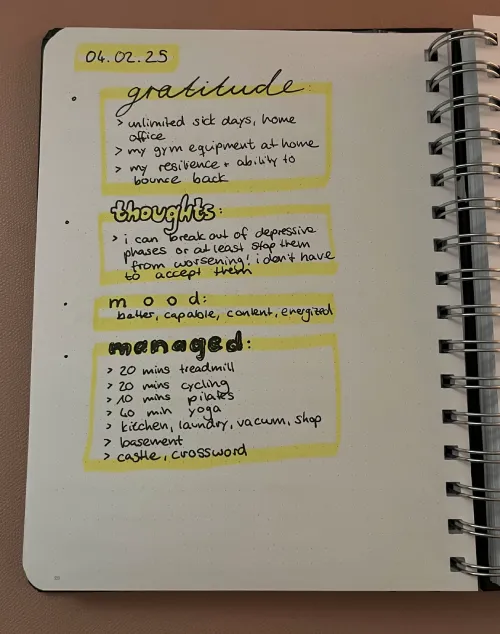 04.02.25
gratitude:
> unlimited sick days, home
office
> my gym equipment at home
> my resilience + ability to
bounce back
thoughts:
> i can break out of depressive
phases or at least stop them
from worsening! i don't have
to accept them
mood:
better, capable, content, energized
managed:
> 20 mins treadmill
> 20 mins cycling
> 10 mins pilates
> 40 min yoga
> kitchen, laundry, vacum, shop
> basement
> castle, crossword